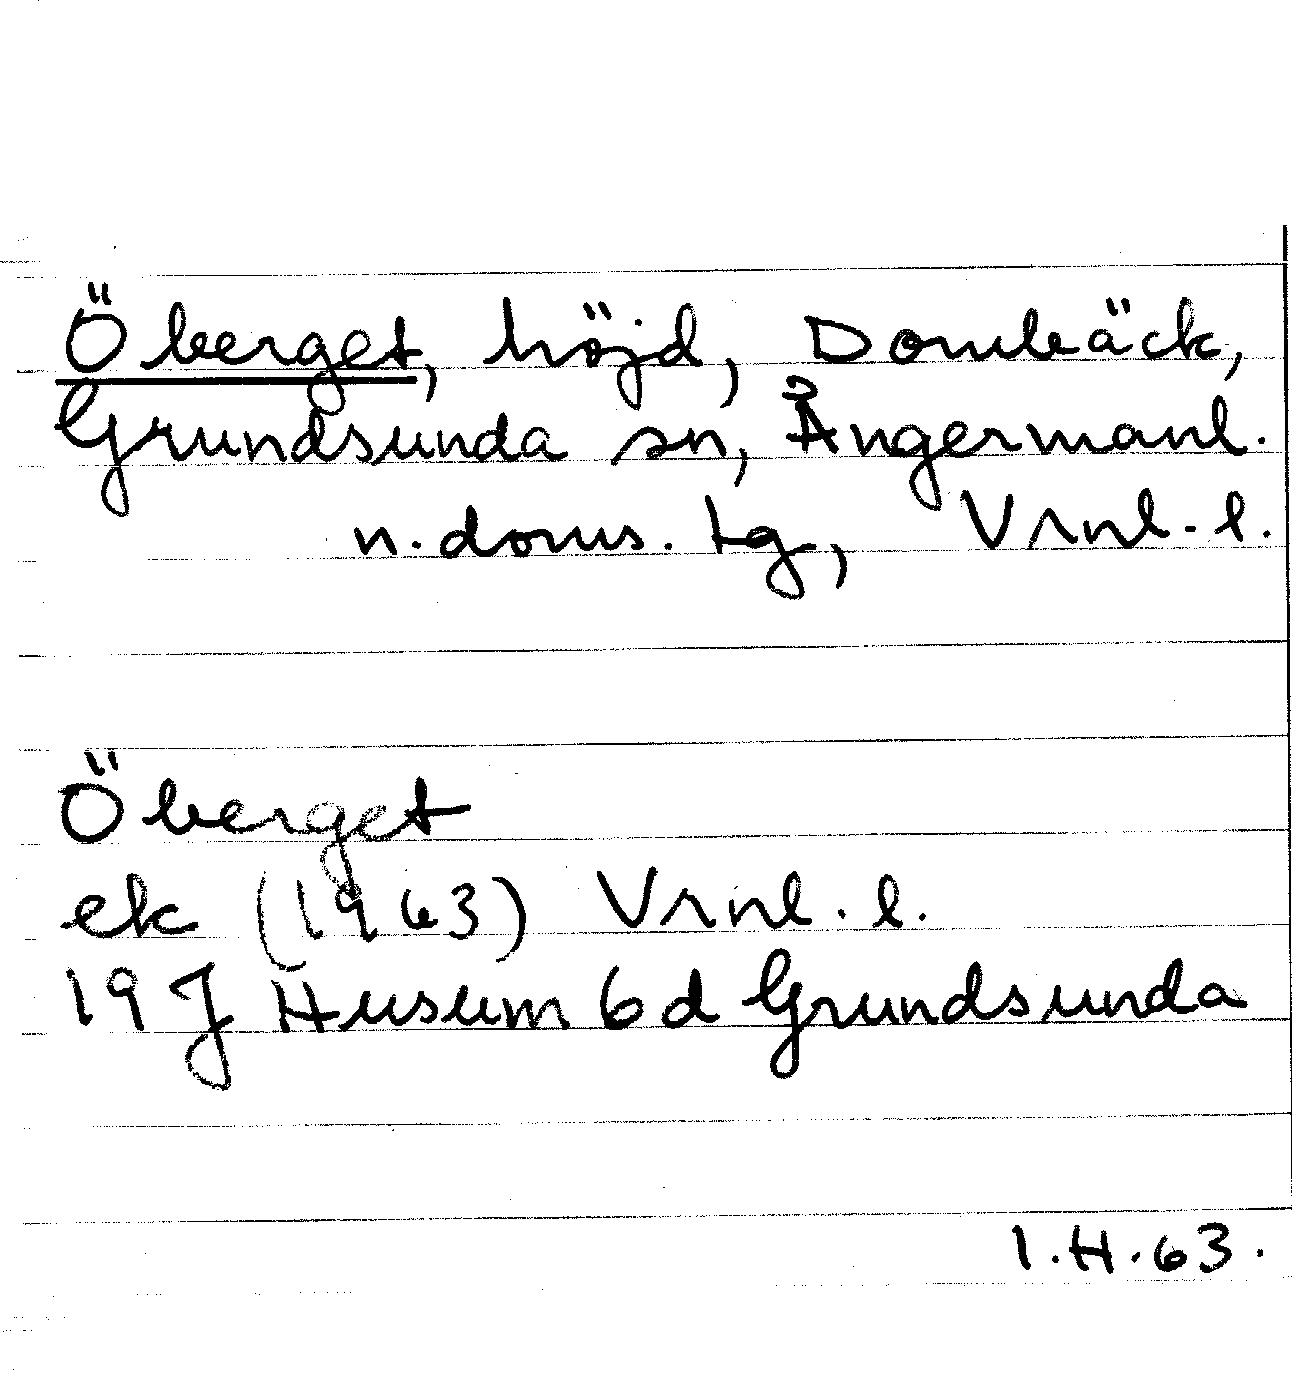 Öberget, höjd, Dombäck,
Grundsunda sn, Ångermanl.
n. doms. tg, Vrnl. l.
Öberget
ek (1963) Vrnl. l.
19 J Husum 6 d Grundsunda
I.H.63.